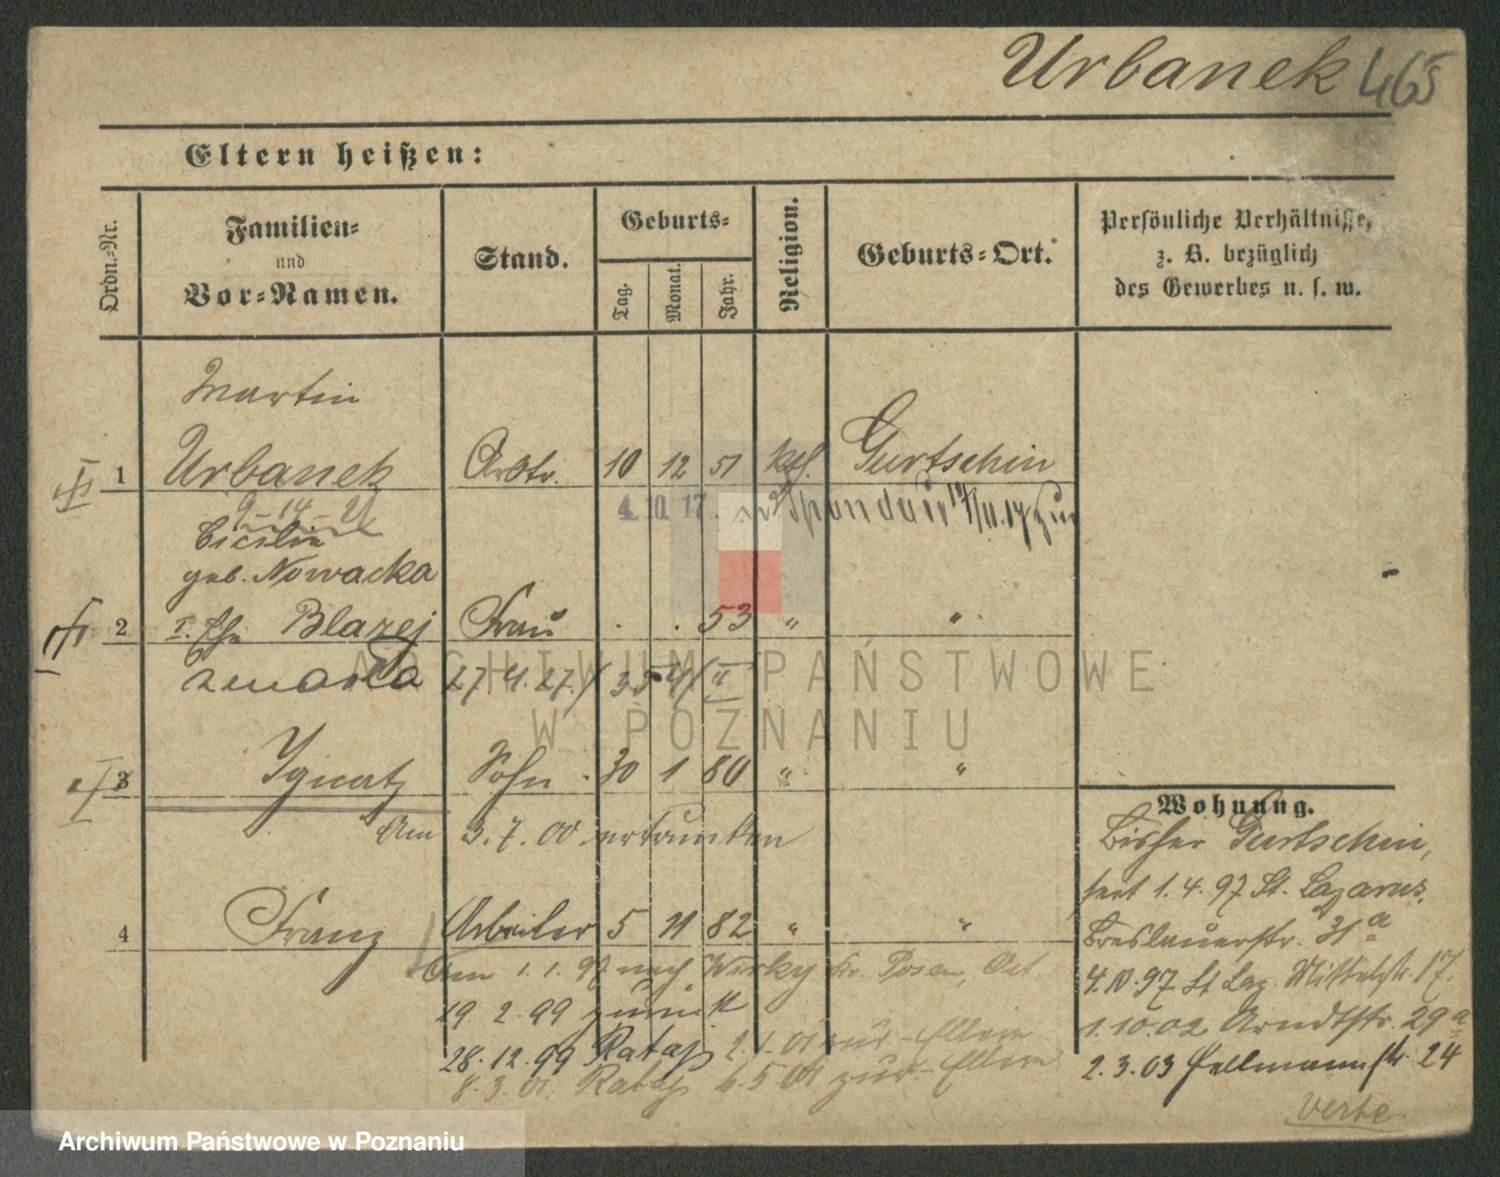 Urbanek 465
Eltern heißen:
Ordn.-Nr.
Familien-
und
Vor-Namen.
Stand.
Geburts-
Tag.
Monat.
Jahr.
Religion.
Geburts-Ort.
Persönliche Verhältnisse,
z. B. bezüglich
des Gewerbes u. s. w.
Martin
1 Urbanek Arbtr. 10 12 51 ktl. Gurtschin
4.10.17. Spandau zur
Cicilia
geb. Nowacka
2 I. Ehe Blazej Frau . . 53 " "
27. 4. 27.
3 Ignatz Sohn 30 1 80 " "
Am 3. 7. 00 ertrunken
4 Franz Arbeiter 5 11 82 " "
Am 1. 1. 97 nach Kr. Posen,
19. 2. 99 zurück
28. 12. 99 Rataj 2. 1. 01 zur. Eltern
8. 3. 01. Rataj 6. 5 01 zur. Eltern
Wohnung.
Bisher Gurtschin,
seit 1. 4. 97 St. Lazarus,
Breslauerstr. 31a
4. 10. 97 St Laz. Mittelstr. 17.
1. 10 02 Arndtstr. 29a
2. 3. 03 Hellmannstr. 24
verte
ARCHIWUM PAŃSTWOWE
W POZNANIU
Archiwum Państwowe w Poznaniu